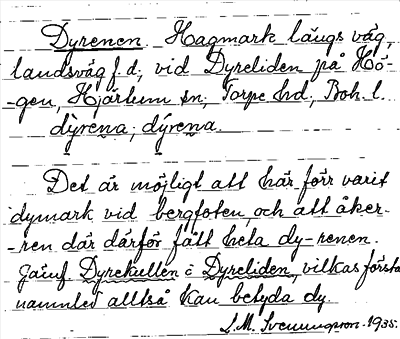 Dyrenen. Hagmark längs väg,
landsväg f. d., vid Dyreliden på Hö-
-gen, Hjärtum sn; Torpe hd, Boh. l.
dyrena; dyrena.
Det är möjligt att här förr varit
dymark vid bergfoten, och att åker-
-ren där därför fått heta dy-renen.
Jämf. Dyrekullen o Dyreliden, vilkas första
namnled alltså kan betyda dy.
J. M. Svenungson. 1935.